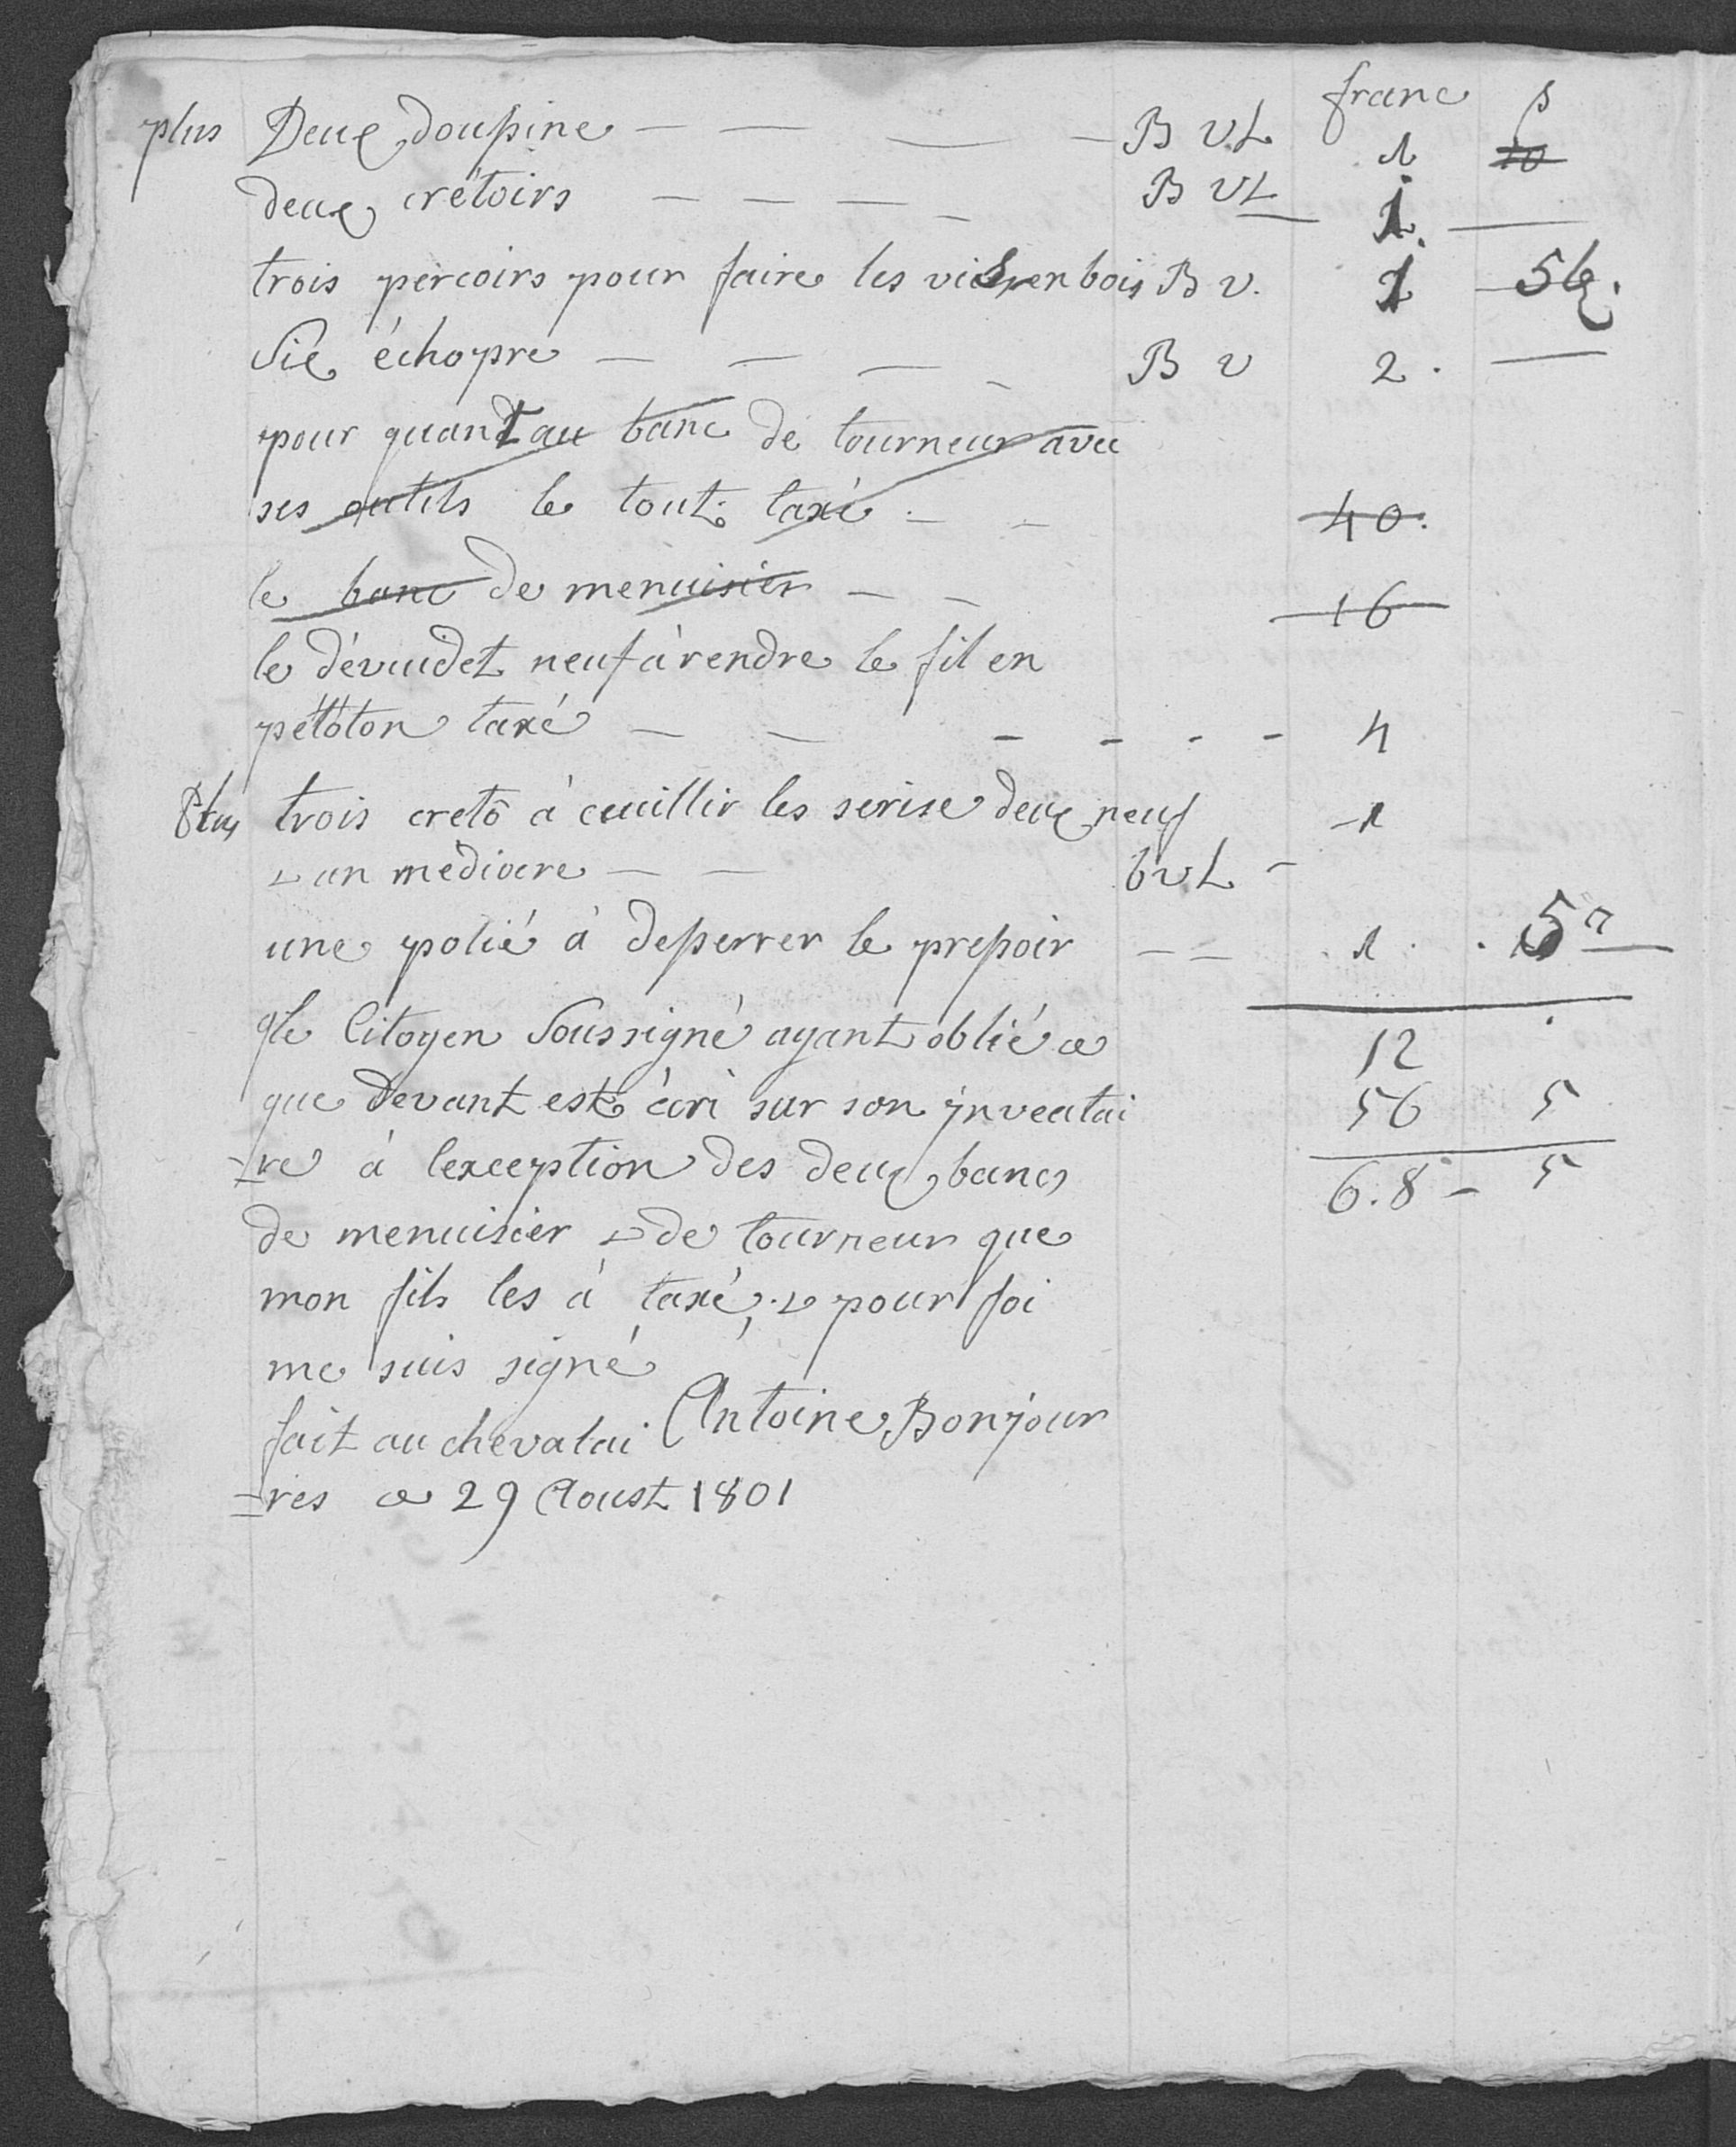 franc ß
plus Deux doussine — — — — B VL 1 10
deux crétoirs — — — — B VL 1 —
trois percoirs pour faire les vis en bois B V. 1 5
Six échopre — — — — B V 2 . —
pour quant au banc de tourneur avec
ses outils le tout taxé . — — 40.
le banc de menuisier — — 16
le dévuidet neuf à rendre le fil en
pelôton taxé — — - - - - 4
Plus trois cretô à ceuillir les serise deux neuf - 1
& un mediocre — — bvL -
une polié à desserrer le pressoir — — 1 . . 5
Je Citoyen Soussigné ayant oblié ce
12
que devant est écri sur son inventai
56 5
=re à lexception des deux bancs
6.8 - 5
de menuisier & de tourneur que
mon fils les à taxé, & pour foi
me suis signé
fait au chevalai Antoine Bonjour
=res ce 29 Aoust 1801